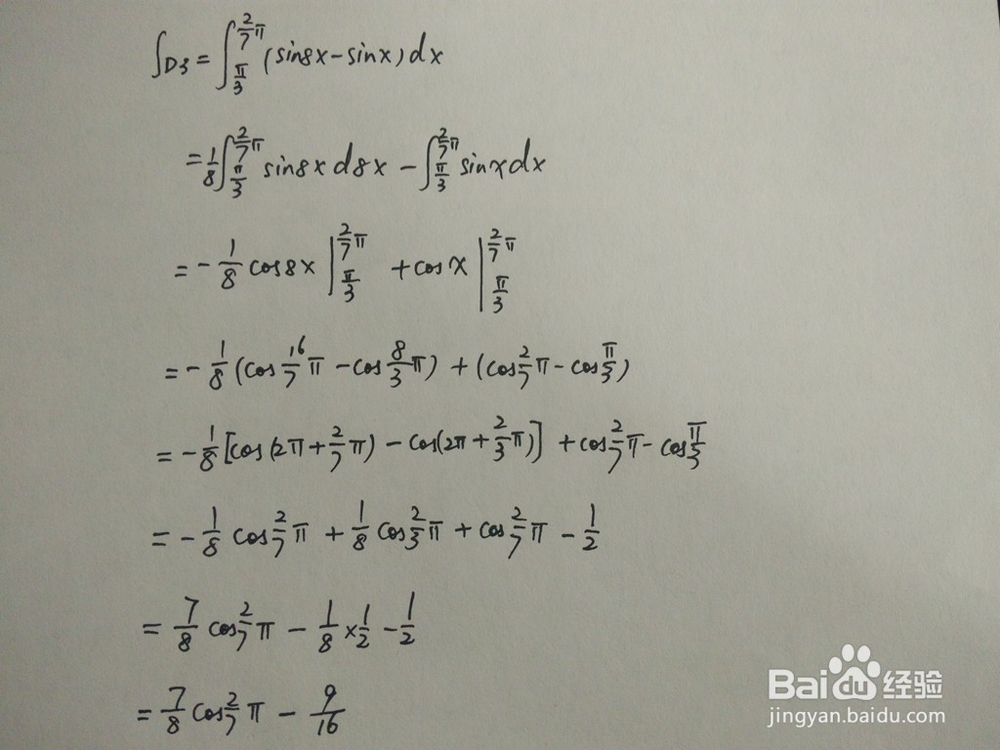 ∫D3 = ∫_{π/3}^{2/7 π} (sin8x - sinx) dx
= 1/8 ∫_{π/3}^{2/7 π} sin8x d8x - ∫_{π/3}^{2/7 π} sinx dx
= - 1/8 cos8x |_{π/3}^{2/7 π} + cosx |_{π/3}^{2/7 π}
= - 1/8 (cos 16/7 π - cos 8/3 π) + (cos 2/7 π - cos π/3)
= - 1/8 [cos(2π + 2/7 π) - cos(2π + 2/3 π)] + cos 2/7 π - cos π/3
= - 1/8 cos 2/7 π + 1/8 cos 2/3 π + cos 2/7 π - 1/2
= 7/8 cos 2/7 π - 1/8 × 1/2 - 1/2
= 7/8 cos 2/7 π - 9/16
Baidu 经验
jingyan.baidu.com